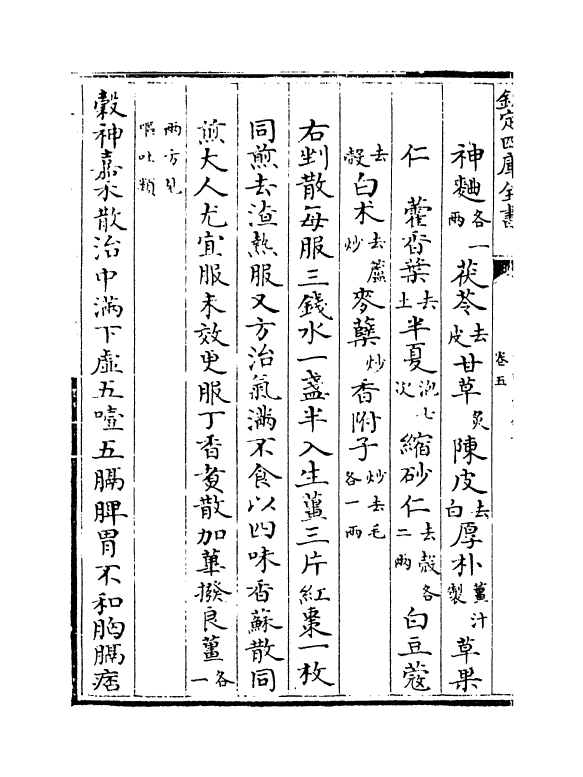 欽定四庫全書
卷五
神麯各一兩茯苓去皮甘草炙陳皮去白厚朴薑汁製草果
仁藿香葉去土半夏泡七次縮砂仁去殼各二兩白豆蔻
去殼白朮去蘆炒麥櫱炒香附子炒去毛各一兩
右剉散每服三錢水一盞半入生薑三片紅棗一枚
同煎去渣熱服又方治氣滿不食以四味香蘇散同
煎大人尤宜服未效更服丁香煑散加蓽撥良薑各一
兩方見嘔吐類
穀神嘉禾散治中滿下虛五噎五膈脾胃不和胸膈痞